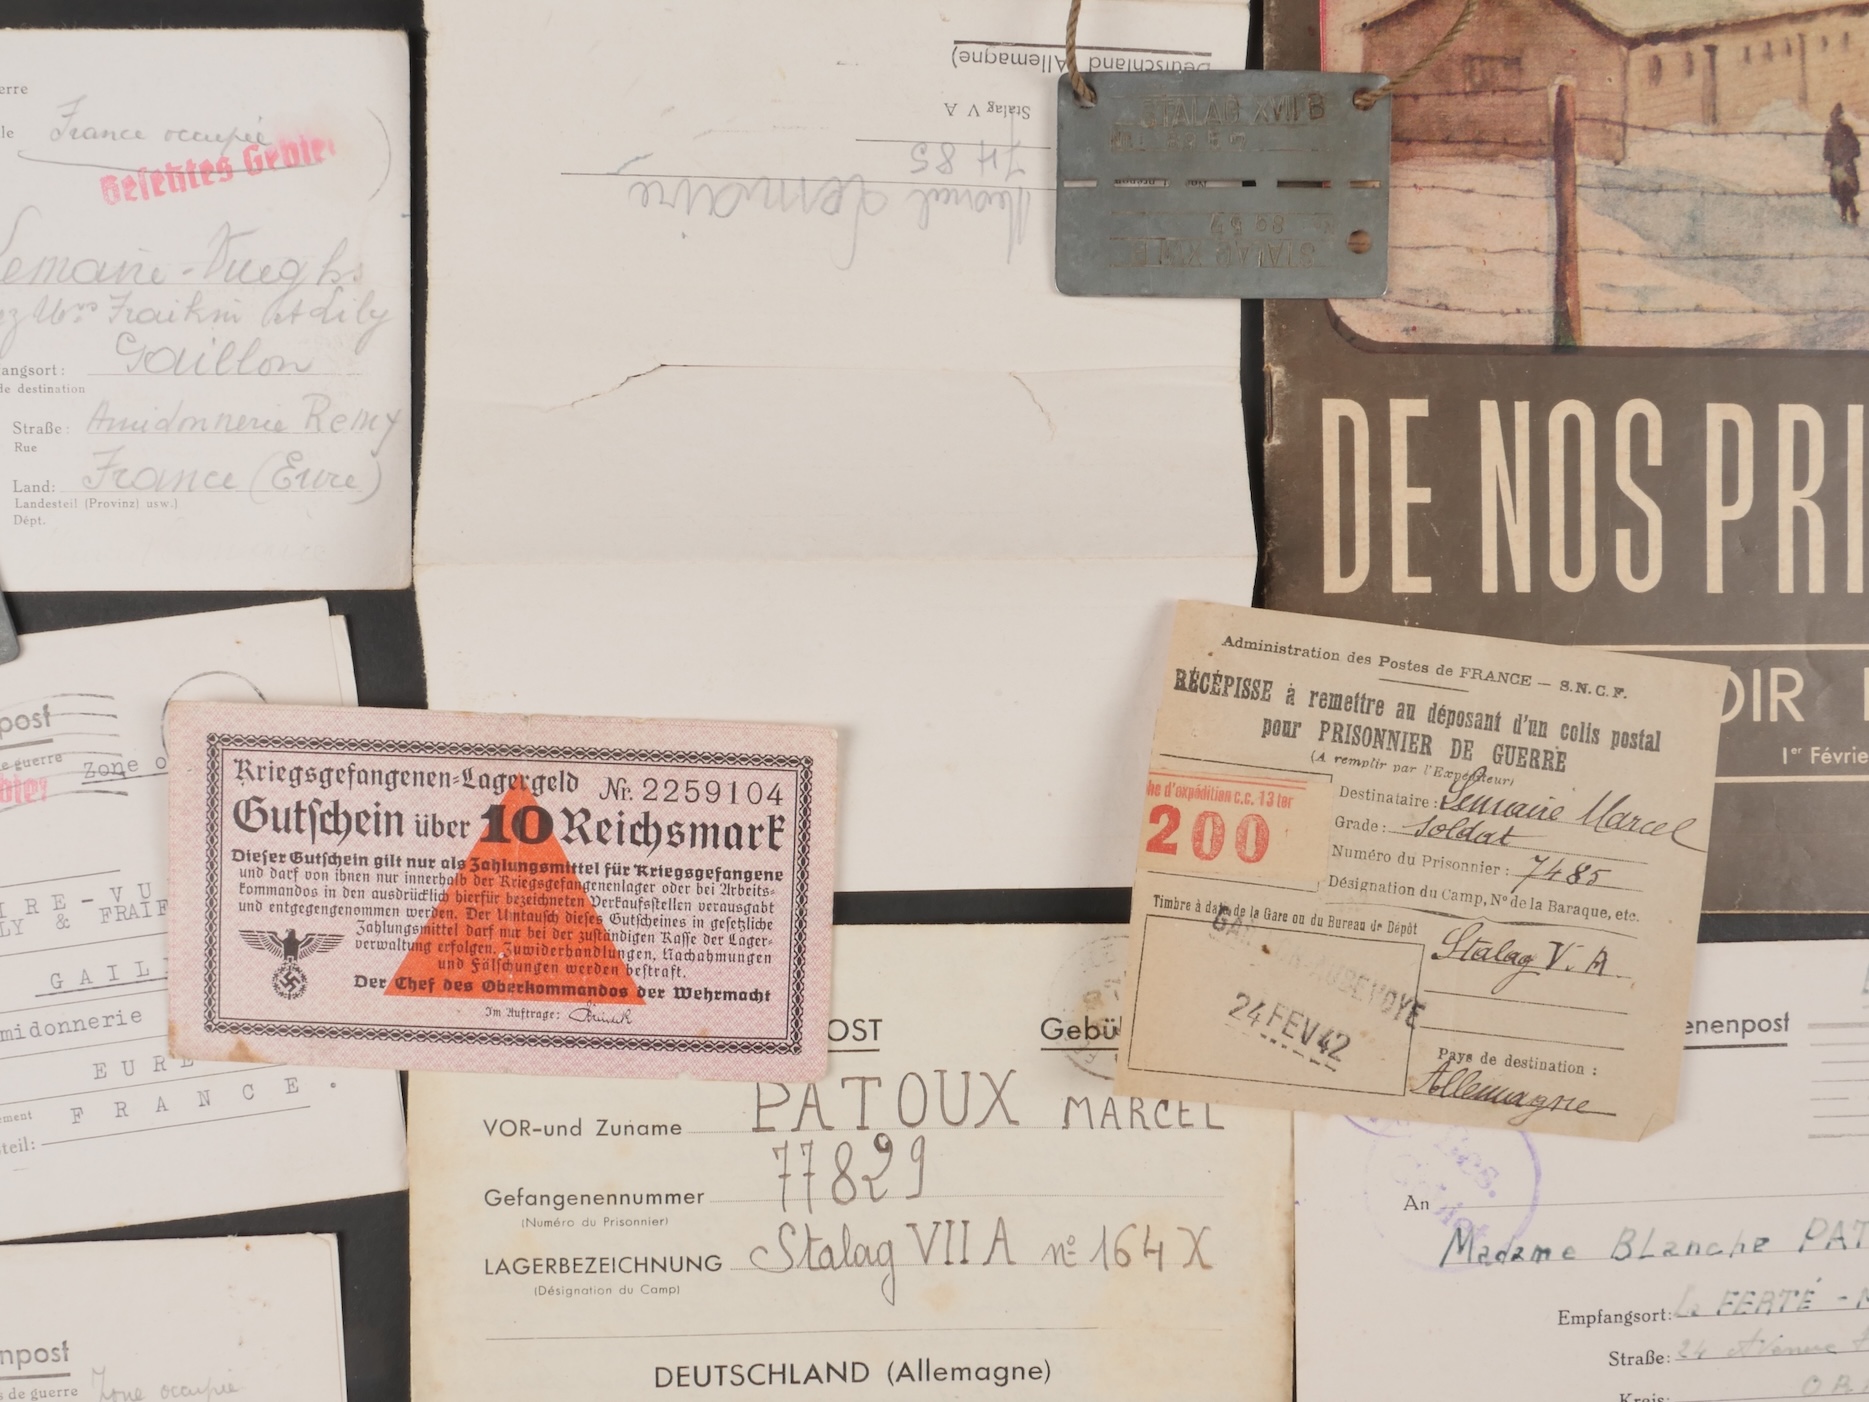 erre
le France occupée
Besetztes Gebiet
Lemaire-Vueghs
Mrs Fraikin et Lily
angsort: Gaillon
de destination
Straße: Amidonnerie Remy
Rue
Land: France (Eure)
Landesteil (Provinz) usw.)
Dépt.
Deutschland (Allemagne)
Stalag V A
7485
Marcel Lemaire
STALAG XVII B
STALAG XVII B
DE NOS PRI
OIR
1er Févrie
post
de guerre Zone o
biet
IRE-VU
LY & FRAI
GAIL
midonnerie
EURE
FRANCE.
ement
steil:
Kriegsgefangenen-Lagergeld Nr. 2259104
Gutschein über 10 Reichsmark
Dieser Gutschein gilt nur als Zahlungsmittel für Kriegsgefangene
und darf von ihnen nur innerhalb der Kriegsgefangenenlager oder bei Arbeits-
kommandos in den ausdrücklich hierfür bezeichneten Verkaufsstellen verausgabt
und entgegengenommen werden. Der Umtausch dieses Gutscheines in gesetzliche
Zahlungsmittel darf nur bei der zuständigen Kasse der Lager-
verwaltung erfolgen. Zuwiderhandlungen, Nachahmungen
und Fälschungen werden bestraft.
Der Chef des Oberkommandos der Wehrmacht
Im Auftrage:
Administration des Postes de FRANCE — S.N.C.F.
RÉCÉPISSE à remettre au déposant d'un colis postal
pour PRISONNIER DE GUERRE
(A remplir par l'Expéditeur)
he d'expédition c.c. 13 ter
200
Destinataire: Lemaire Marcel
Grade: Soldat
Numéro du Prisonnier: 7485
Désignation du Camp, N° de la Baraque, etc.
Stalag V. A
Timbre à date de la Gare ou du Bureau de Dépôt
24 FEV 42
Pays de destination:
Allemagne
OST Gebü
VOR-und Zuname PATOUX MARCEL
Gefangenennummer 77829
(Numéro du Prisonnier)
LAGERBEZEICHNUNG Stalag VII A n° 164 X
(Désignation du Camp)
DEUTSCHLAND (Allemagne)
enenpost
An
Madame Blanche PAT
Empfangsort: La FERTÉ-
Straße: 24 Avenue
Kreis:
npost
s de guerre Zone occupée